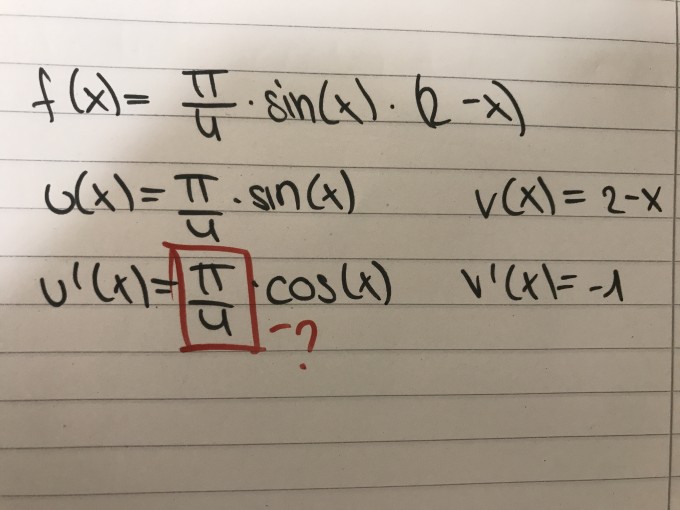 f(x) = π/4 · sin(x) · (2 - x)
u(x) = π/4 · sin(x) v(x) = 2-x
u'(x) = π/4 · cos(x) v'(x) = -1
-?